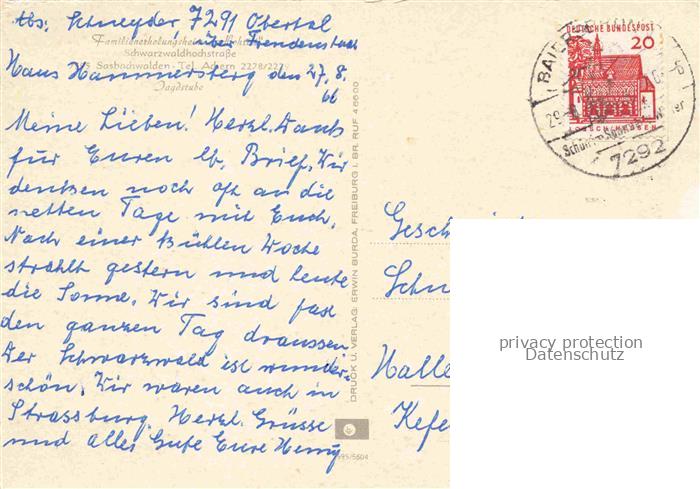 Abs: Schneyder, 7291 Obertal
über Freudenstadt
Familienerholungsheim
Schwarzwaldhochstraße
Sasbachwalden · Tel. Achern 2278/227
Jagdstube
Haus Hammersberg den 27.8.
66
Meine Lieben! Herzl. Dank
für Euren lb. Brief. Wir
denken noch oft an die
netten Tage mit Euch.
Nach einer kühlen Woche
strahlt gestern und heute
die Sonne. Wir sind fast
den ganzen Tag draussen
Der Schwarzwald ist wunder-
schön. Wir waren auch in
Strassburg. Herzl. Grüsse
und alles Gute Eure Henny
DRUCK U. VERLAG: ERWIN BURDA, FREIBURG I. BR. RUF 46600
995/5604
DEUTSCHE BUNDESPOST
20
LORSCH/HESSEN
BAIERSBRONN
29.
7292
Geschwister
Schn
Halle
Kefe
privacy protection
Datenschutz